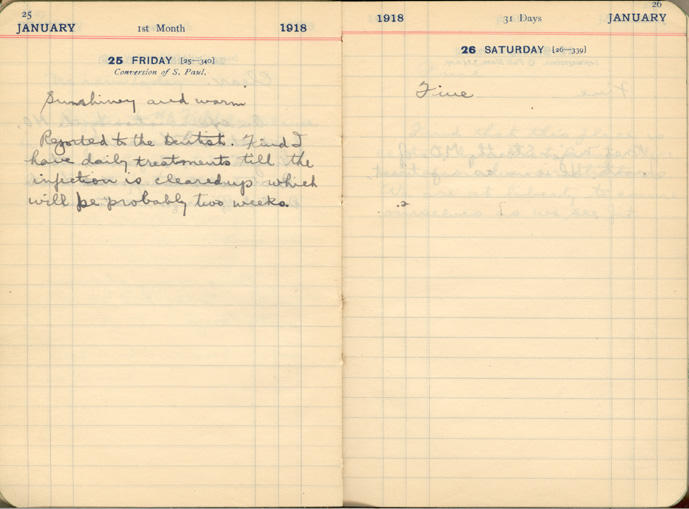 25
JANUARY 1st Month 1918
25 FRIDAY [25—340]
Conversion of S. Paul.
Sunshiney and warm
Reported to the Dentist. Find I
have daily treatments till the
infection is cleared up which
will be probably two weeks.
26
1918 31 Days JANUARY
26 SATURDAY [26—339]
Fine